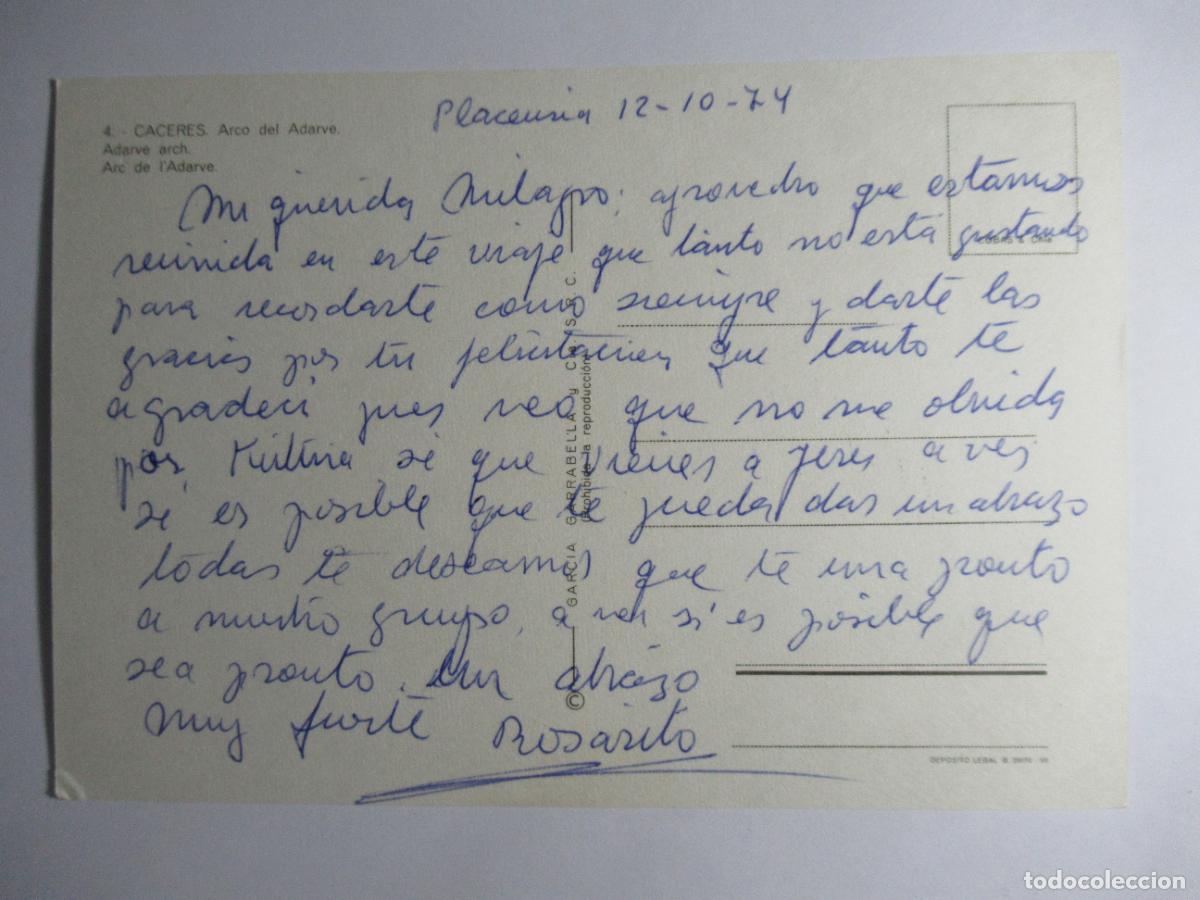 Placensia 12-10-74
4. - CACERES. Arco del Adarve.
Adarve arch.
Arc de l'Adarve.
Mi querida Milagro; aprovecho que estamos
reunida en este viaje que tanto no está gustando
para recordarte como siempre y darte las
gracias por tu felicitacion que tanto te
agradeci pues veo que no me olvida
por sé que vienes a Jeres a ves
si es posible que te pueda das un abrazo
todas te deseamos que te una pronto
a nuestro grupo, a ver si es posible que
sea pronto. Un abrazo
muy fuerte Rosarito
© GARCIA GARRABELLA y Cia. S.R.C.
(Prohibida la reproducción)
DEPOSITO LEGAL B.
todocoleccion